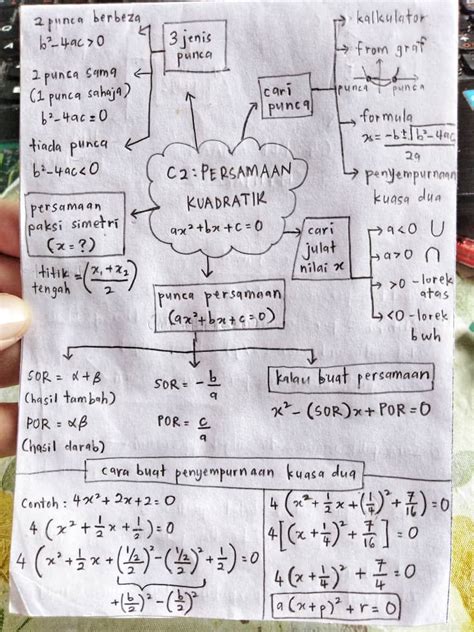 2 punca berbeza
b²-4ac>0
2 punca sama
(1 punca sahaja)
b²-4ac=0
tiada punca
b²-4ac<0
3 jenis
punca
cari
punca
kalkulator
from graf
punca punca
formula
x = -b±√b²-4ac
2a
penyempurnaan
kuasa dua
C2: PERSAMAAN
KUADRATIK
ax²+bx+c=0
persamaan
paksi simetri
(x=?)
titik tengah = (x₁+x₂/2)
cari
julat
nilai x
a<0 ∪
a>0 ∩
>0 -lorek
atas
<0 -lorek
bwh
punca persamaan
(ax²+bx+c=0)
SOR = α+β
(hasil tambah)
POR = αβ
(hasil darab)
SOR = -b/a
POR = c/a
kalau buat persamaan
x²-(SOR)x+POR=0
cara buat penyempurnaan kuasa dua
Contoh: 4x²+2x+2=0
4(x²+1/2x+1/2)=0
4(x²+1/2x+(1/2/2)²-(1/2/2)²+1/2)=0
+(b/2)²-(b/2)²
4(x²+1/2x+(1/4)²+7/16)=0
4[(x+1/4)²+7/16]=0
4(x+1/4)²+7/4=0
a(x+p)²+r=0